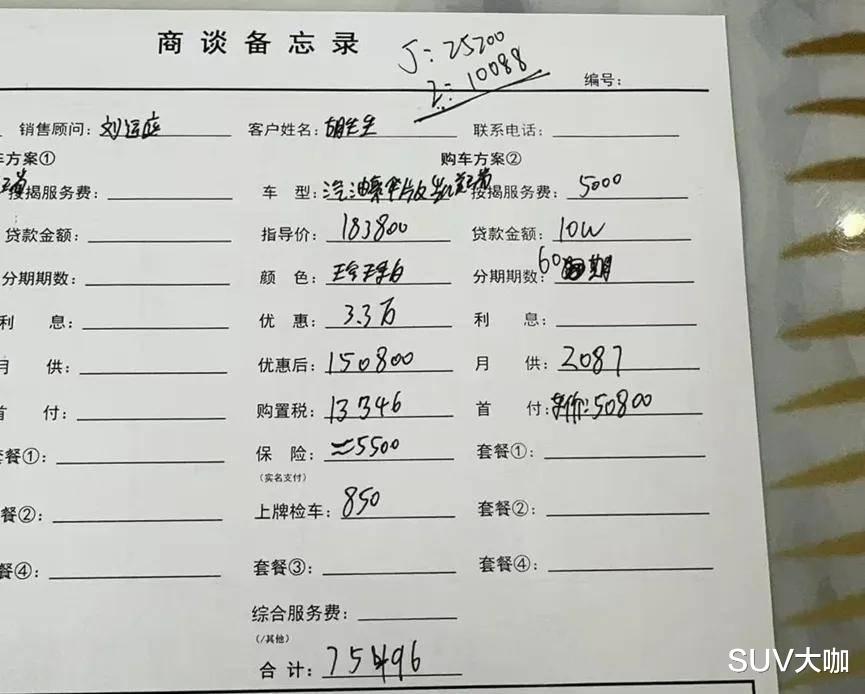 商谈备忘录
J: 25200
2: 10088
编号:
销售顾问: 刘运庭 客户姓名: 胡先生 联系电话:
车方案① 购车方案②
按揭服务费: 车 型: 汽油豪华版 按揭服务费: 5000
贷款金额: 指导价: 183800 贷款金额: 10W
分期期数: 颜 色: 珍珠白 分期期数: 60期
利 息: 优 惠: 3.3万 利 息:
月 供: 优惠后: 150800 月 供: 2087
首 付: 购置税: 13346 首 付: 车价: 50800
套餐①: 保 险: ≈5500 套餐①:
(实名支付)
餐②: 上牌检车: 850 套餐②:
餐④: 套餐③: 套餐④:
综合服务费:
(/其他)
合 计: 75496
SUV大咖